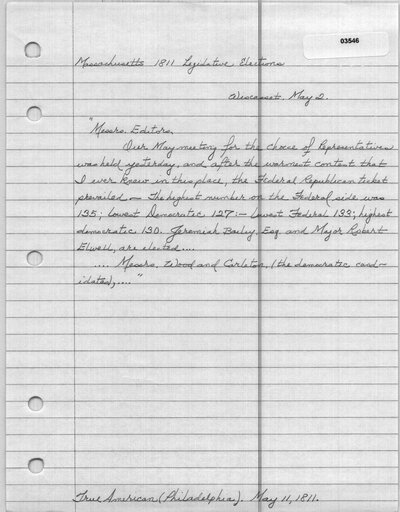 03546
Massachusetts 1811 Legislative Elections
Wiscasset, May 2.
"Messrs. Editors,
Our May meeting for the choice of Representatives
was held yesterday, and after the warmest contest that
I ever knew in this place, the Federal Republican ticket
prevailed — The highest number on the Federal side was
135; lowest Democratic 127:— lowest Federal 133; highest
democratic 130. Jeremiah Bailey, Esq. and Major Robert
Elwell, are elected....
.... Messrs. Wood and Carleton, (the democratic cand-
idates), ...."
True American (Philadelphia). May 11, 1811.